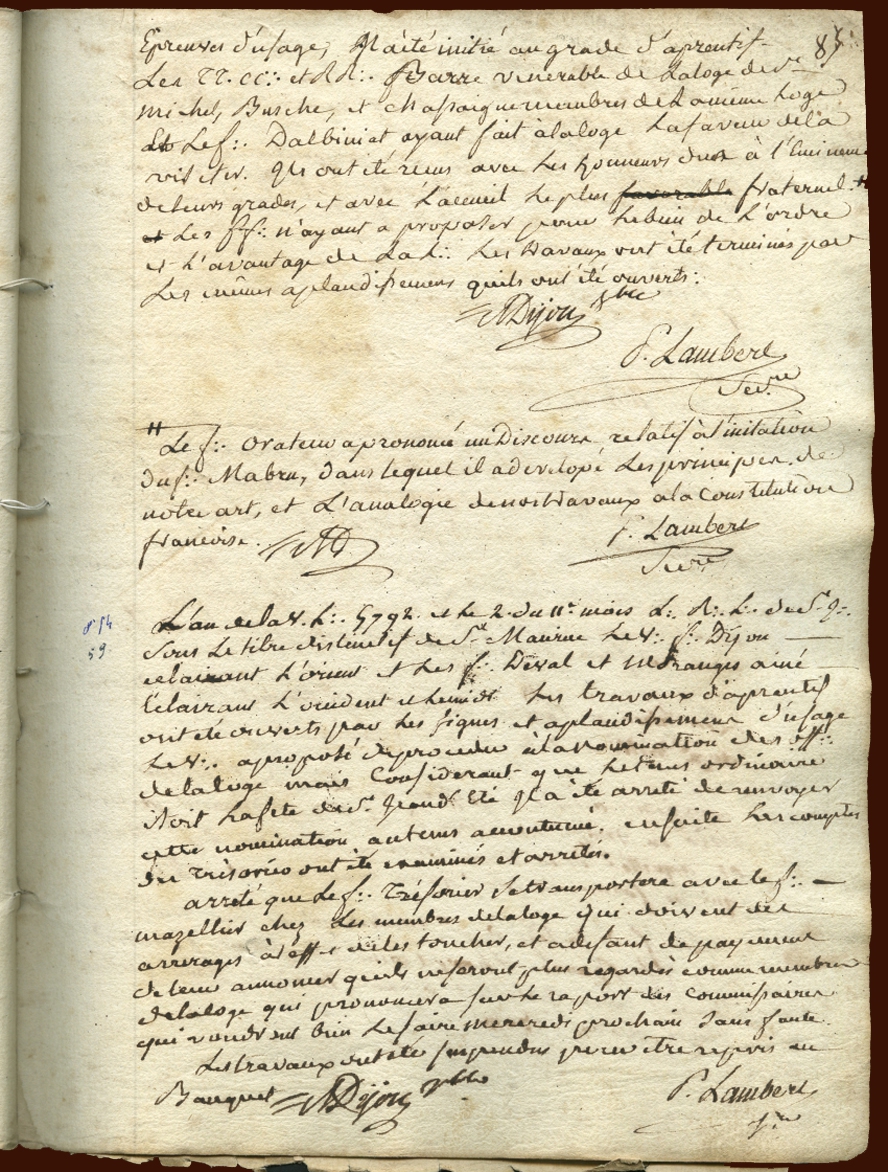 85
Epreuves d'usage, Il a été initié au grade d'aprentif
Les TT. CC∴ et RR∴ Barre venerable de la loge de St
michel, Busche, et Chassaigne membres de La même Loge
Et Le f∴ Dalbiniat ayant fait à la loge La faveur de la
visiter. Ils ont été reçus avec Les honneurs dus à l'Eminence
de leurs grades, et avec L'accueil Le plus favorable fraternel. "
et Les ff∴ n'ayant a proposer pour Le bien de L'ordre
et L'avantage de La L∴ Les travaux ont été terminés par
Les mêmes aplaudissemens qu'ils ont été ouverts.
Dijon Vble
P. Lambert
Secre
" Le f∴ Orateur a prononcé un Discours relatif à l'initiation
du f∴ Mabru, dans lequel il a developé Les principes de
notre art, et L'analogie de nos travaux a la Constitution
francoise.
P. Lambert
Secre
8bre 14
59
L'an de la V. L∴ 5792 et Le 2 du 11e mois L∴ R∴ L∴ de St J∴
Sous Le titre distinctif de St Maurice Le V∴ f∴ Dijon
eclairant L'orient et Les f∴ Deval et Meranges ainé
Eclairant L'occident et Le midi Les travaux d'aprentif
ont été ouverts par Les signes et aplaudissement d'usage
Le V∴ a proposé de proceder à la nomination des off∴
de la loge mais Considerant que Le tems ordinaire
étoit La fete de St Jean d'Eté Il a été arreté de renvoyer
cette nomination au tems accoutumé. ensuite Les comptes
du Trésorier ont été examinés et arretés.
arreté que Le f∴ Trésorier se transportera avec le f∴
mazellier chez Les membres de la loge qui doivent des
arrerages à l'effet de les toucher, et a defaut de payement
de leur annoncer qu'ils ne seront plus regardés comme membres
de la loge qui prononcera sur Le raport des Commissaires
qui voudront bien Le faire mercredi prochain Sans faute.
Les travaux ont été suspendus pour être repris au
Banquet Dijon Vble
P. Lambert
Sre